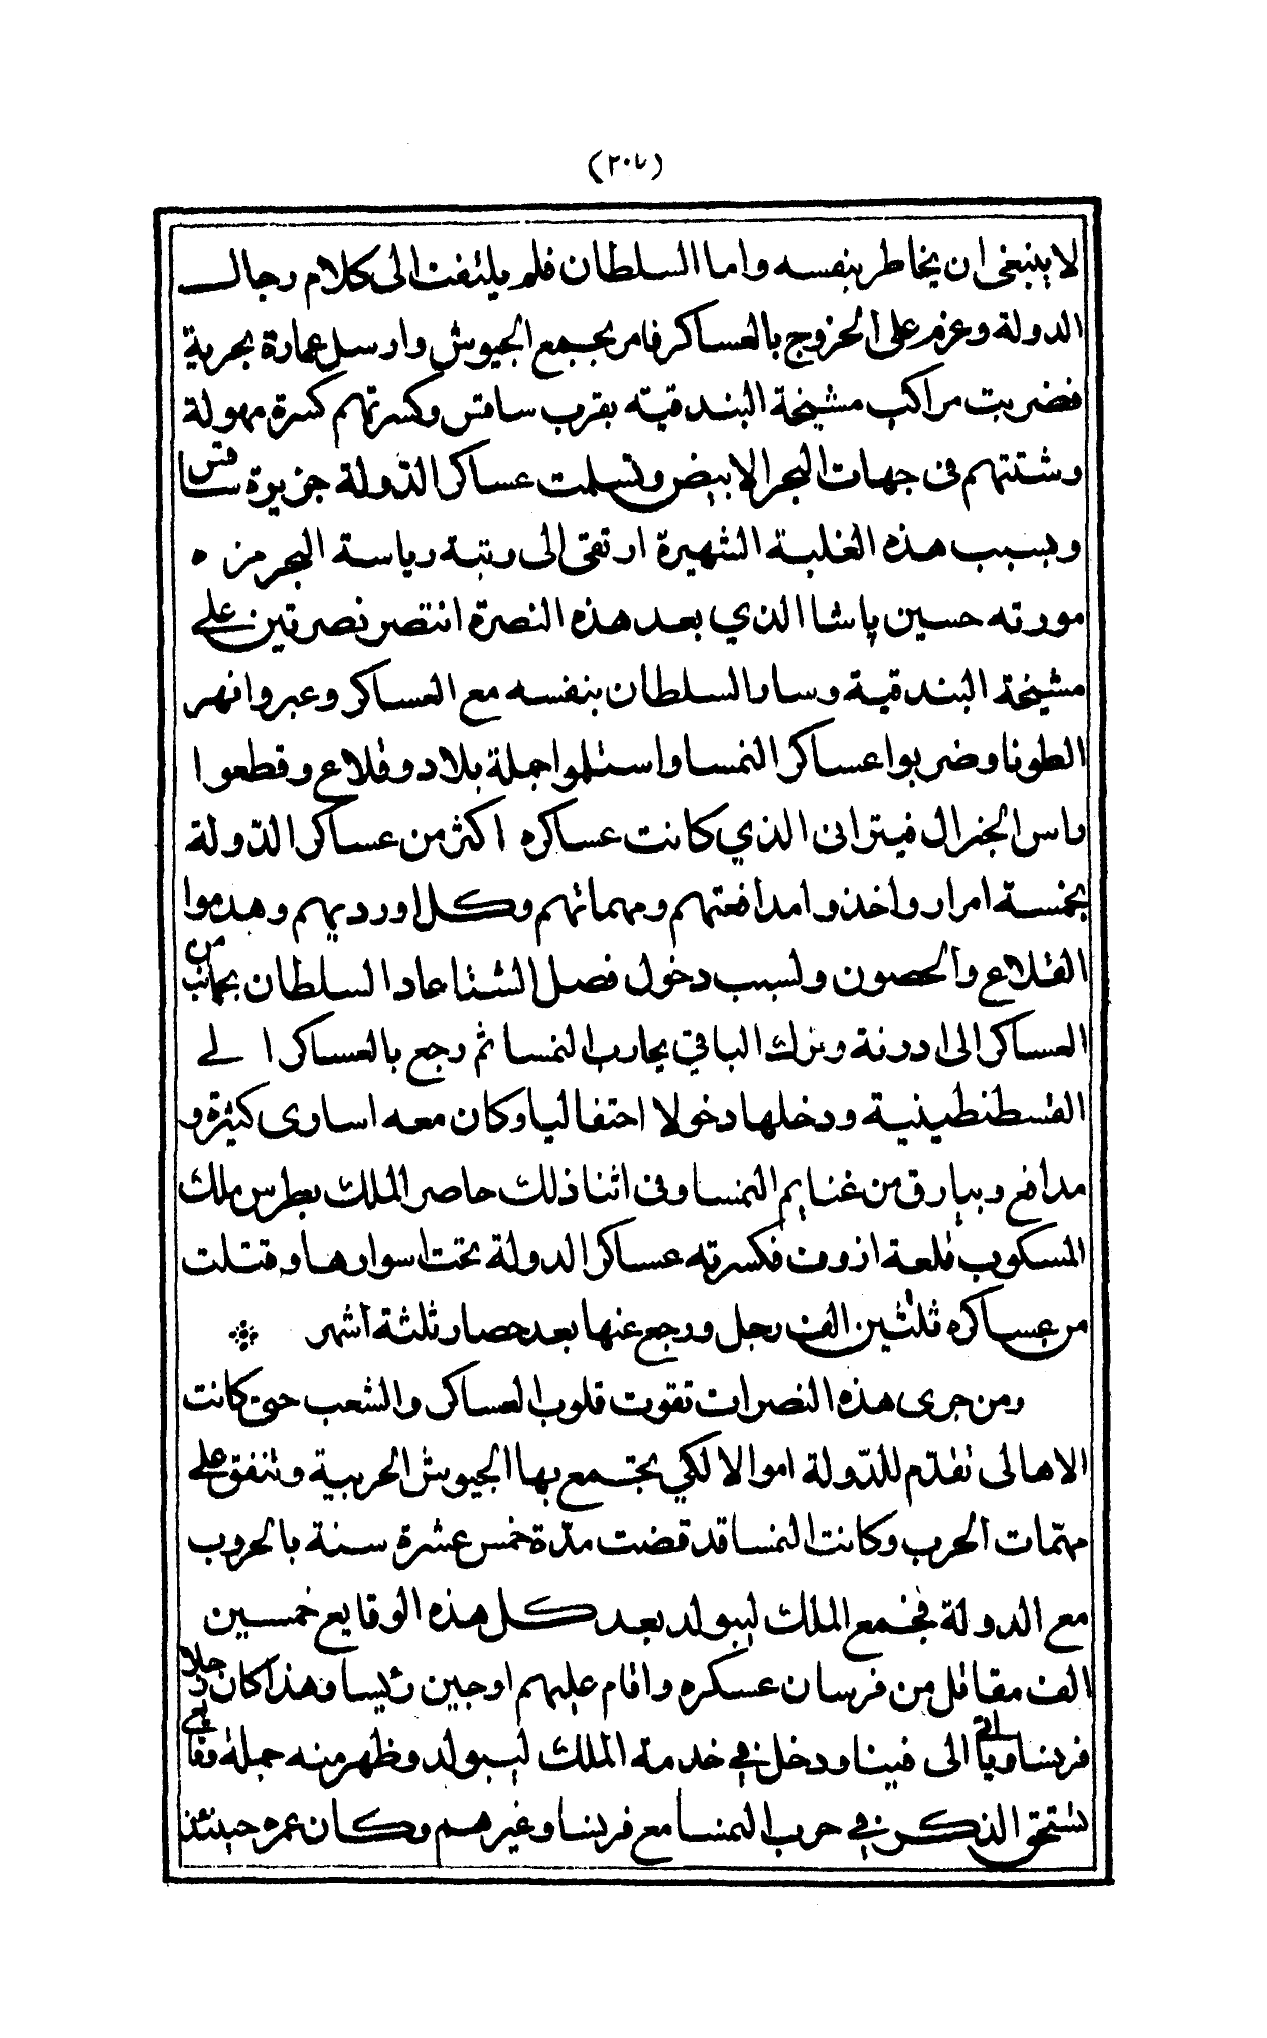 (٢٠٧)
لا ينبغى ان يخاطر بنفسه واما السلطان فلم يلتفت الى كلام رجال
الدولة وعزم على الخروج بالعساكر فامر بجمع الجيوش وارسل عمارة بحرية
فضربت مراكب مشيخة البندقيته بقرب ساقس وكسرتهم كسرة مهولة
وشتتتهم فى جهات البحر الابيض وتسلمت عساكر الدّولة جزيرة ساقس
وبسبب هذه الغلبة الشهيرة ارتقى الى رتبة رياسة البحر من ه
مورته حسين پاشا الذي بعد هذه النصرة انتصر نصرتين على
مشيخة البندقية وسار السلطان بنفسه مع العساكر وعبروا نهر
الطونا وضربوا عساكر النمسا واستلموا جملة بلاد وقلاع وقطعوا
راس الجنرال فيترانى الذي كانت عساكره اكثر من عساكر الدّولة
بخمسة امرار واخذوا مدافعتهم ومهماتهم وكل اورديهم وهدموا
القلاع والحصون ولسبب دخول فصل الشتا عاد السلطان بجانب من
العساكر الى ادرنة وترك الباقي يحارب النمسا ثم رجع بالعساكر الے
القسطنطينية ودخلها دخولا احتفاليا وكان معه اسارى كثيرة و
مدافع وبيارق من غنايم النمسا وفى اثنا ذلك حاصر الملك بطرس ملك
المسكوب قلعة ازوف فكسرته عساكر الدولة تحت اسوارها وقتلت
من عساكره ثلثين الف رجل ورجع عنها بعد حصار ثلثة اشهر
ومن جرى هذه النصرات تقوت قلوب العساكر والشعب حتى كانت
الاهالى تقدّم للدّولة اموالا لكي يجتمع بها الجيوش الحربية وتنفق على
مهمّات الحرب وكانت النمسا قد قضت مدّة خمس عشرة سنة بالحروب
مع الدولة فجمع الملك ليبولد بعد كل هذه الوقايع خمسين
الف مقاتل من فرسان عسكره واقام عليهم اوجين رئيسا وهذا كان رجلا
فرنساوياً اتى الى فينا ودخل في خدمة الملك ليبولد وظهر منه جملة وقايع
تستحق الذكر في حرب النمسا مع فرنسا وغيرهم وكان عمره حينئذ